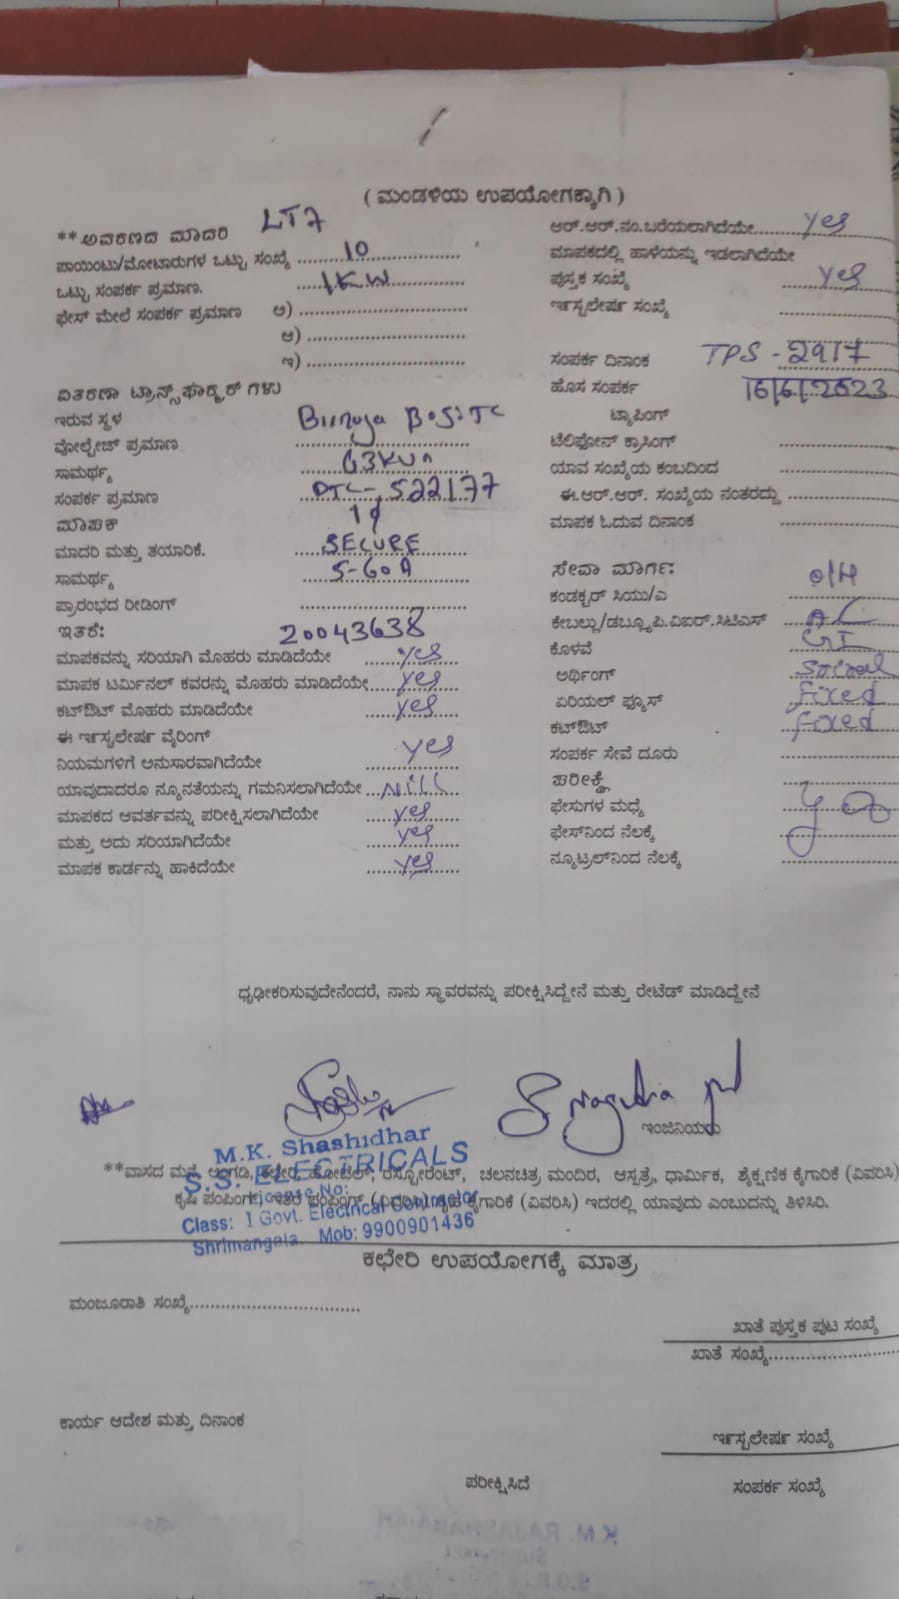 ( ಮಂಡಳಿಯ ಉಪಯೋಗಕ್ಕಾಗಿ )
**ಆವರಣದ ಮಾದರಿ LT7
ಪಾಯಿಂಟು/ಮೋಟಾರುಗಳ ಒಟ್ಟು ಸಂಖ್ಯೆ 10
ಒಟ್ಟು ಸಂಪರ್ಕ ಪ್ರಮಾಣ. 1KW
ಫೇಸ್ ಮೇಲೆ ಸಂಪರ್ಕ ಪ್ರಮಾಣ ಅ)
ಆ)
ಇ)
ವಿತರಣಾ ಟ್ರಾನ್ಸ್‌ಫಾರ್ಮರ್ ಗಳು
ಇರುವ ಸ್ಥಳ
ವೋಲ್ಟೇಜ್ ಪ್ರಮಾಣ
ಸಾಮರ್ಥ್ಯ 63KVA
ಸಂಪರ್ಕ ಪ್ರಮಾಣ DTC-522177
ಮಾಪಕ 1φ
ಮಾದರಿ ಮತ್ತು ತಯಾರಿಕೆ. SECURE
ಸಾಮರ್ಥ್ಯ 5-60A
ಪ್ರಾರಂಭದ ರೀಡಿಂಗ್
ಇತರೆ: 20043638
ಮಾಪಕವನ್ನು ಸರಿಯಾಗಿ ಮೊಹರು ಮಾಡಿದೆಯೇ yes
ಮಾಪಕ ಟರ್ಮಿನಲ್ ಕವರನ್ನು ಮೊಹರು ಮಾಡಿದೆಯೇ yes
ಕಟ್‌ಔಟ್ ಮೊಹರು ಮಾಡಿದೆಯೇ yes
ಈ ಇನ್‌ಸ್ಟಲೇಷನ್ ವೈರಿಂಗ್
ನಿಯಮಗಳಿಗೆ ಅನುಸಾರವಾಗಿದೆಯೇ yes
ಯಾವುದಾದರೂ ನ್ಯೂನತೆಯನ್ನು ಗಮನಿಸಲಾಗಿದೆಯೇ Nill
ಮಾಪಕದ ಆವರ್ತವನ್ನು ಪರೀಕ್ಷಿಸಲಾಗಿದೆಯೇ yes
ಮತ್ತು ಅದು ಸರಿಯಾಗಿದೆಯೇ yes
ಮಾಪಕ ಕಾರ್ಡನ್ನು ಹಾಕಿದೆಯೇ yes
ಆರ್.ಆರ್.ನಂ.ಬರೆಯಲಾಗಿದೆಯೇ yes
ಮಾಪಕದಲ್ಲಿ ಹಾಳೆಯನ್ನು ಇಡಲಾಗಿದೆಯೇ
ಪುಸ್ತಕ ಸಂಖ್ಯೆ yes
ಇನ್‌ಸ್ಟಲೇಷನ್ ಸಂಖ್ಯೆ
ಸಂಪರ್ಕ ದಿನಾಂಕ TPS - 2917
ಹೊಸ ಸಂಪರ್ಕ 16/6/2023
ಟ್ಯಾಪಿಂಗ್
ಟೆಲಿಫೋನ್ ಕ್ರಾಸಿಂಗ್
ಯಾವ ಸಂಖ್ಯೆಯ ಕಂಬದಿಂದ
ಈ.ಆರ್.ಆರ್. ಸಂಖ್ಯೆಯ ನಂತರದ್ದು
ಮಾಪಕ ಓದುವ ದಿನಾಂಕ
ಸೇವಾ ಮಾರ್ಗ: O/H
ಕಂಡಕ್ಟರ್ ಸಿಯು/ಎ
ಕೇಬಲ್ಲು/ಡಬ್ಲ್ಯೂ.ಪಿ.ವಿಐರ್.ಸಿಟಿಎಸ್ AL
ಕೊಳವೆ GI
ಅರ್ಥಿಂಗ್
ಏರಿಯಲ್ ಫ್ಯೂಸ್ fixed
ಕಟ್‌ಔಟ್ fixed
ಸಂಪರ್ಕ ಸೇವೆ ದೂರು
ಪರೀಕ್ಷೆ
ಫೇಸುಗಳ ಮಧ್ಯೆ
ಫೇಸ್‌ನಿಂದ ನೆಲಕ್ಕೆ
ನ್ಯೂಟ್ರಲ್‌ನಿಂದ ನೆಲಕ್ಕೆ
ಧೃಢೀಕರಿಸುವುದೇನೆಂದರೆ, ನಾನು ಸ್ಥಾವರವನ್ನು ಪರೀಕ್ಷಿಸಿದ್ದೇನೆ ಮತ್ತು ರೇಟೆಡ್ ಮಾಡಿದ್ದೇನೆ
ಇಂಜಿನಿಯರು
M.K. Shashidhar
S.S. ELECTRICALS
License No:
Class: I Govt. Electrical Contractor
Shrimangala. Mob: 9900901436
**ವಾಸದ ಮನೆ, ಅಂಗಡಿ, ಕಛೇರಿ, ಹೋಟೆಲ್, ರೆಸ್ಟೋರೆಂಟ್, ಚಲನಚಿತ್ರ ಮಂದಿರ, ಆಸ್ಪತ್ರೆ, ಧಾರ್ಮಿಕ, ಶೈಕ್ಷಣಿಕ ಕೈಗಾರಿಕೆ (ವಿವರಿಸಿ)
ಕೃಷಿ ಪಂಪಿಂಗ್, ಇತರೆ ಪಂಪಿಂಗ್ (ವಿವರಿಸಿ) ಗೃಹ ಕೈಗಾರಿಕೆ (ವಿವರಿಸಿ) ಇದರಲ್ಲಿ ಯಾವುದು ಎಂಬುದನ್ನು ತಿಳಿಸಿರಿ.
ಕಛೇರಿ ಉಪಯೋಗಕ್ಕೆ ಮಾತ್ರ
ಮಂಜೂರಾತಿ ಸಂಖ್ಯೆ
ಖಾತೆ ಪುಸ್ತಕ ಪುಟ ಸಂಖ್ಯೆ
ಖಾತೆ ಸಂಖ್ಯೆ
ಕಾರ್ಯ ಆದೇಶ ಮತ್ತು ದಿನಾಂಕ
ಇನ್‌ಸ್ಟಲೇಷನ್ ಸಂಖ್ಯೆ
ಪರೀಕ್ಷಿಸಿದೆ
ಸಂಪರ್ಕ ಸಂಖ್ಯೆ